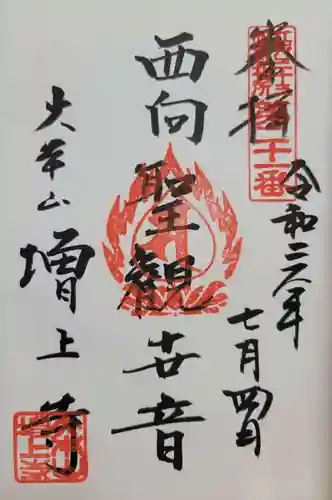 奉拝
二十一番
令和三年
七月四日
西向聖觀世音
大本山
増上寺